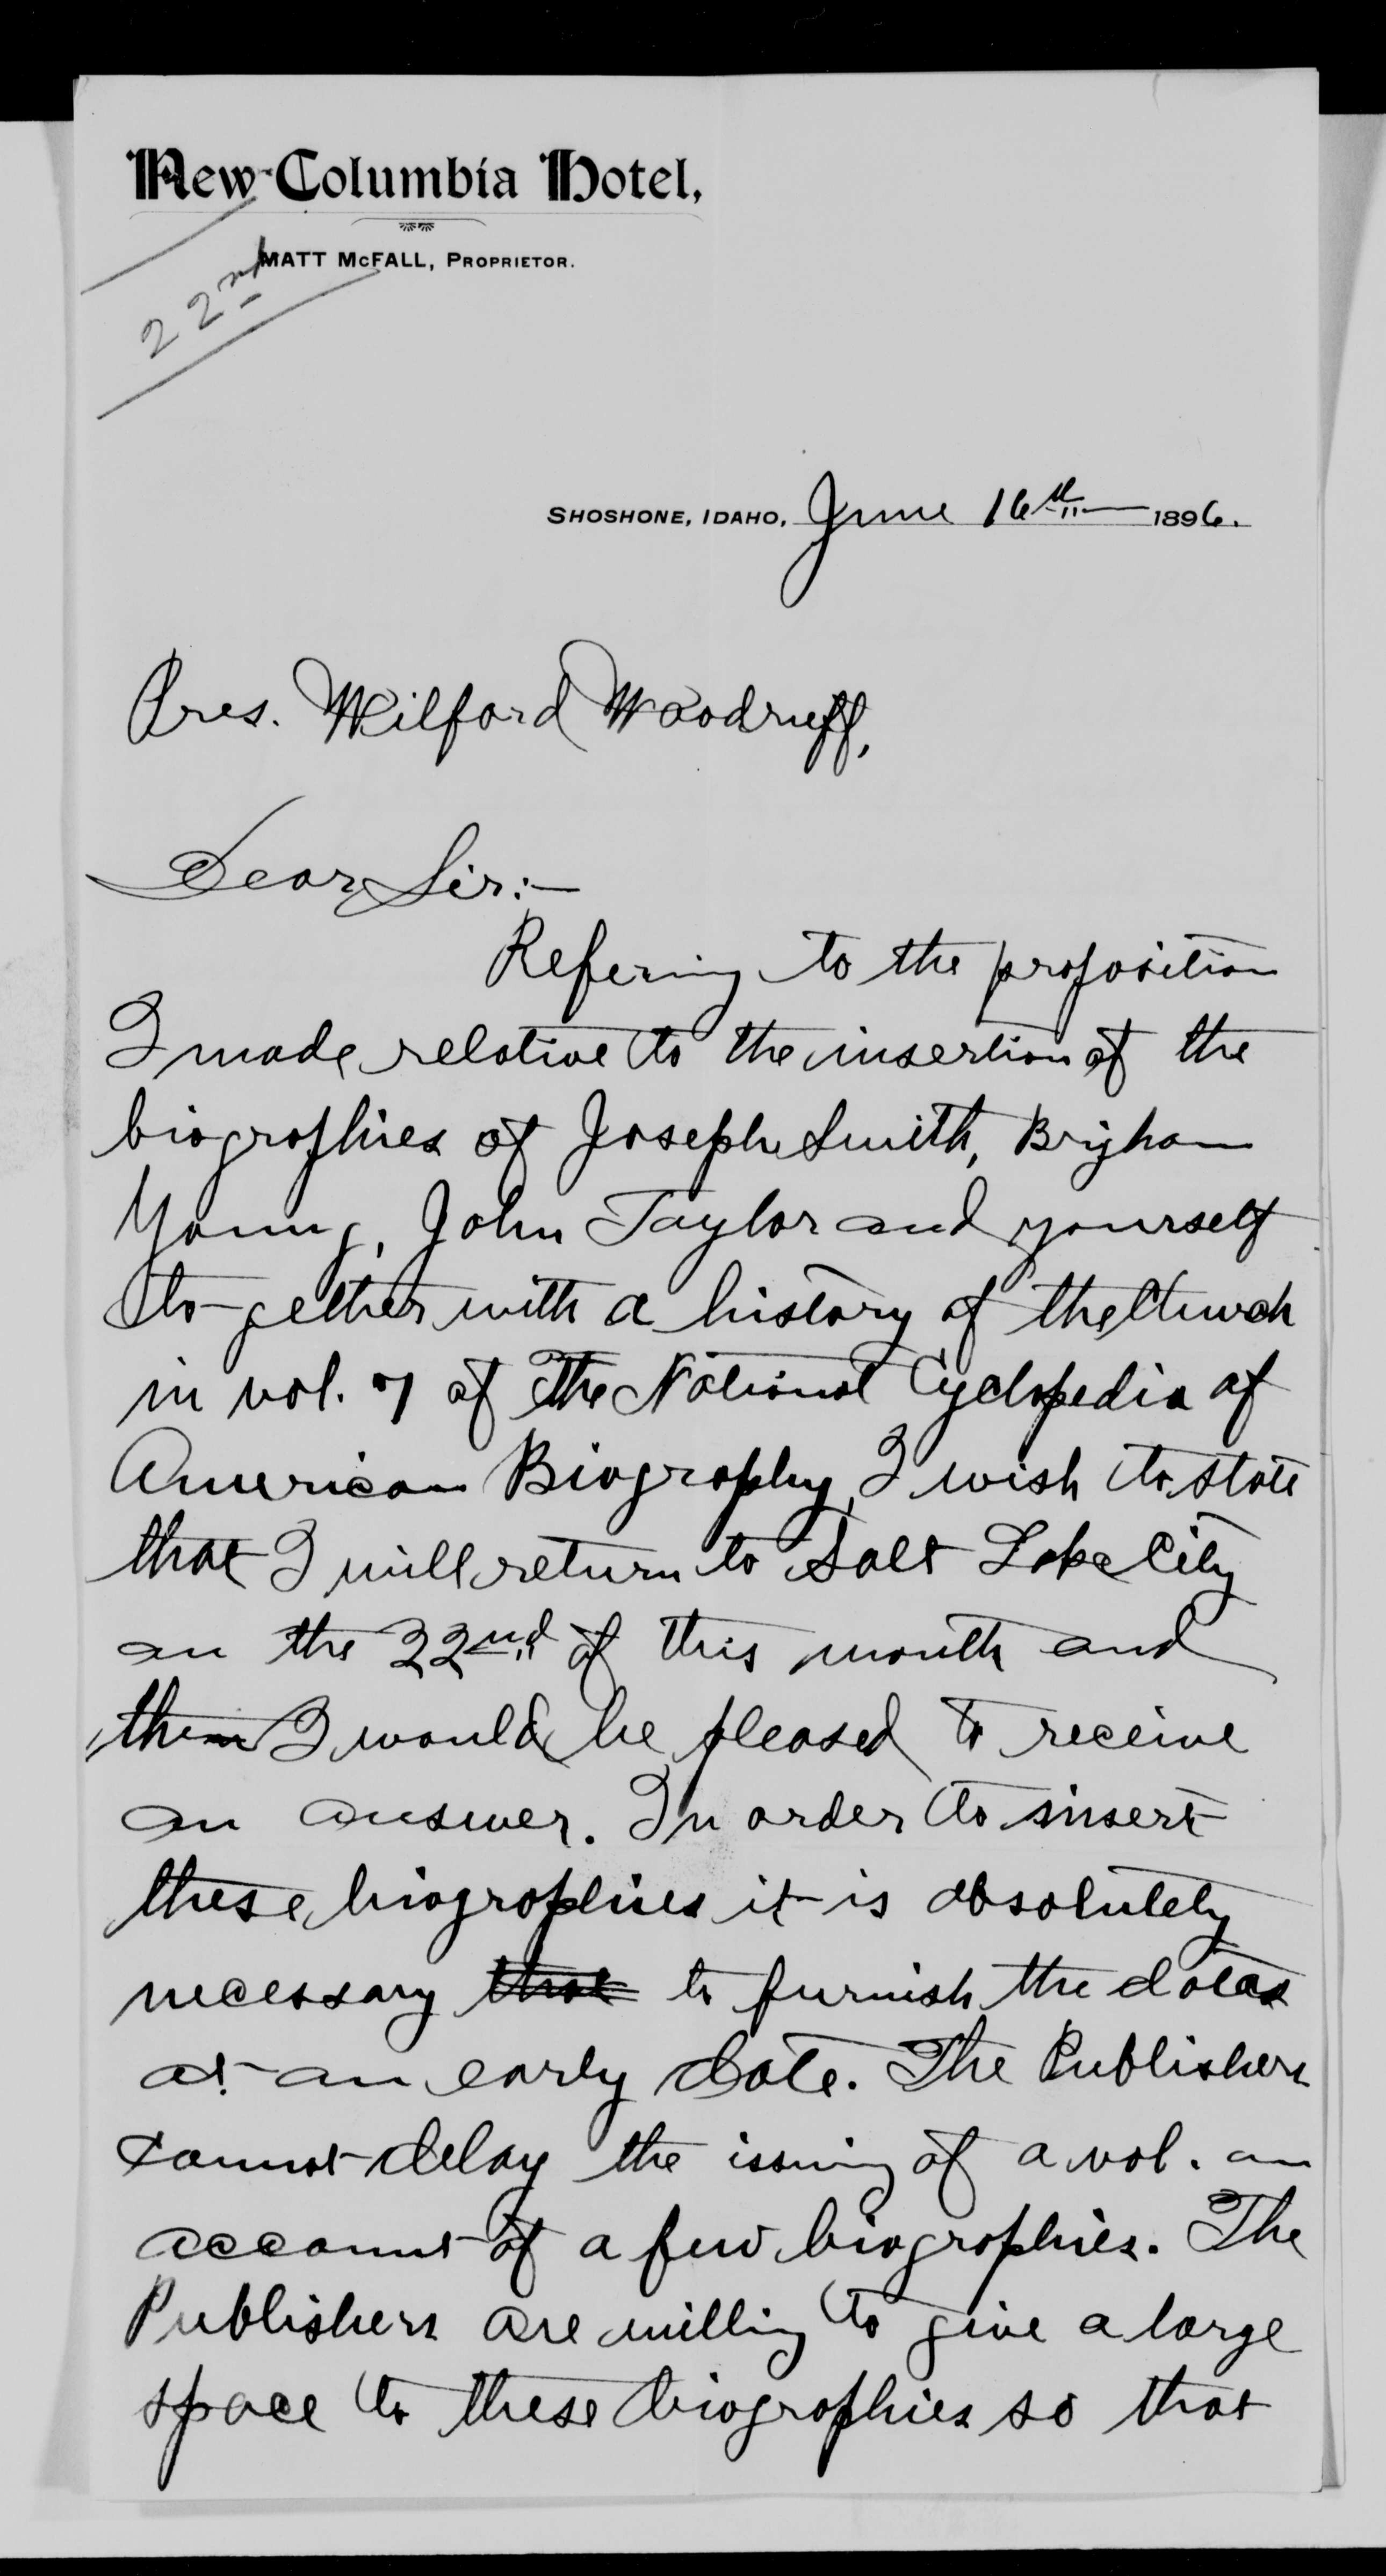 New Columbia Hotel,
MATT McFALL, PROPRIETOR.
22nd
SHOSHONE, IDAHO, June 16th 1896.
Pres. Wilford Woodruff,
Dear Sir:-
Refering to the proposition
I made relative to the insertion of the
biographies of Joseph Smith, Brigham
Young, John Taylor and yourself
to-gether with a history of the Church
in vol. 7 of The National Cyclopedia of
American Biography, I wish to state
that I will return to Salt Lake City
on the 22nd of this month and
then I would be pleased to receive
an answer. In order to insert
these biographies it is absolutely
necessary that to furnish the datas
at an early date. The Publishers
cannot delay the issuing of a vol. on
account of a few biographies. The
Publishers are willing to give a large
space to these biographies so that